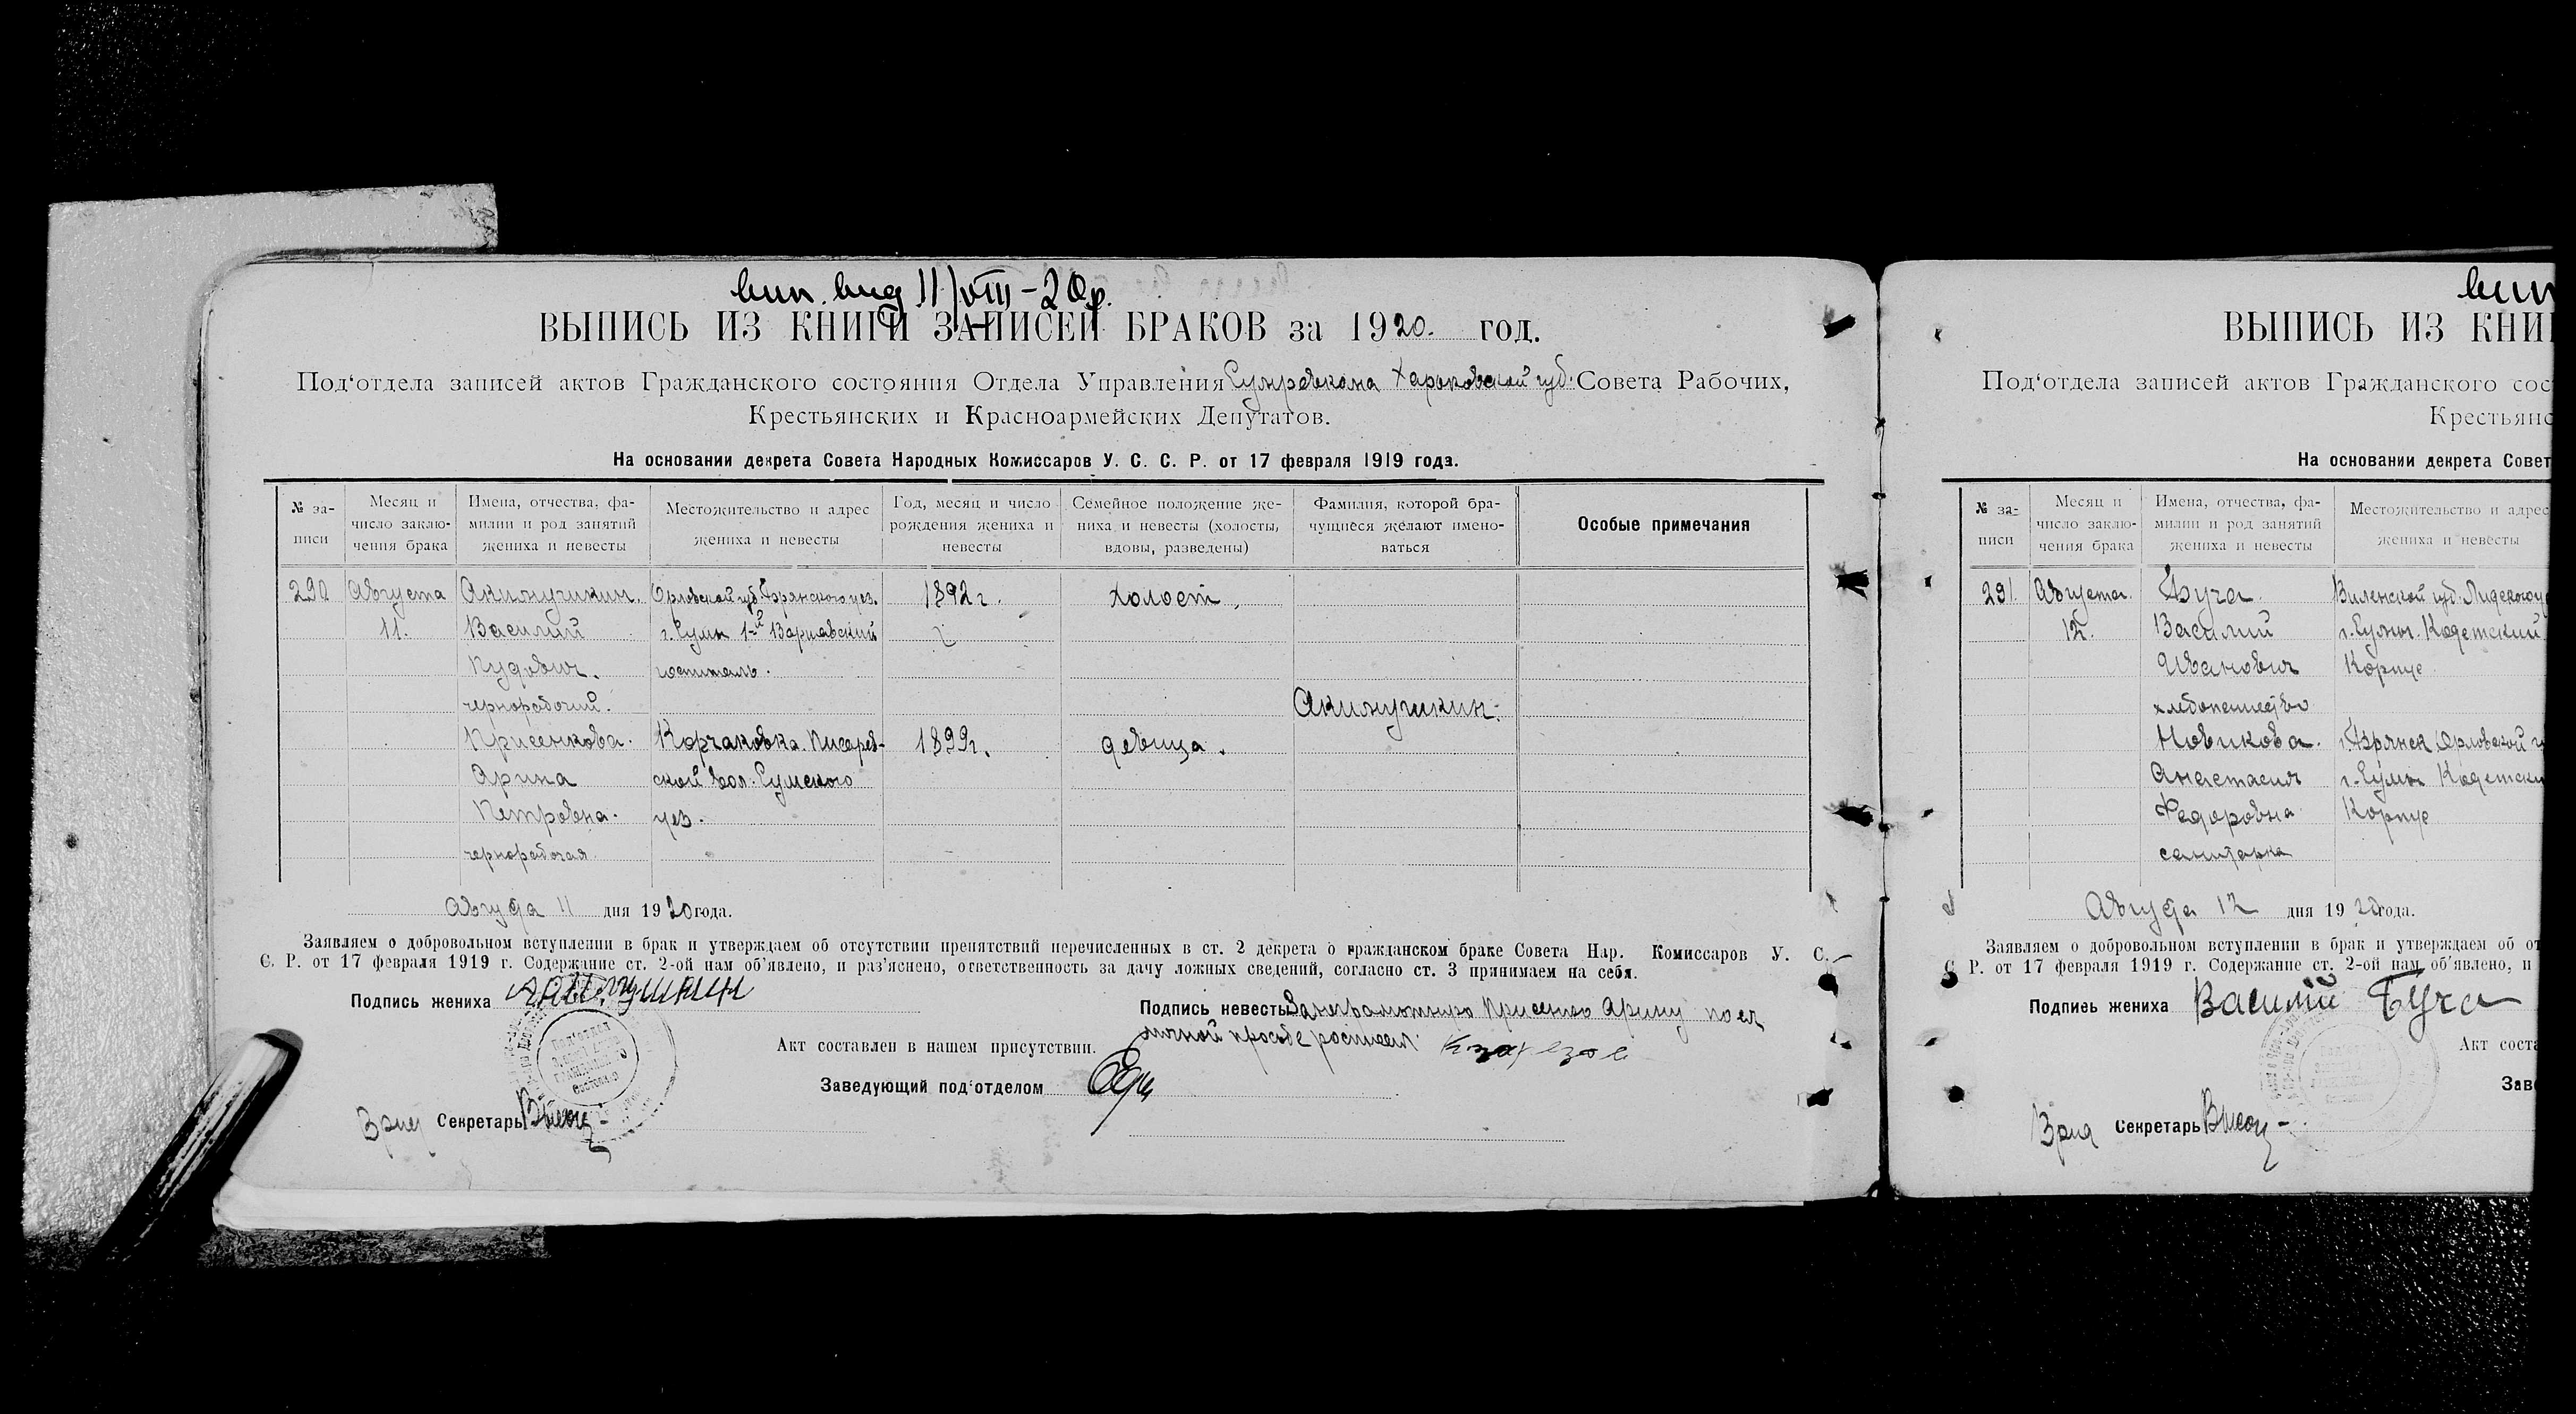 вип. вид 11/VIII-20р.
ВЫПИСЬ ИЗ КНИГИ ЗАПИСЕЙ БРАКОВ за 1920. год.
Под‘отдела записей актов Гражданского состояния Отдела Управления Сумревкома Харьковской губ. Совета Рабочих,
Крестьянских и Красноармейских Депутатов.
На основании декрета Совета Народных Комиссаров У. С. С. Р. от 17 февраля 1919 года.
№ записи
Месяц и число заключения брака
Имена, отчества, фамилии и род занятий жениха и невесты
Местожительство и адрес жениха и невесты
Год, месяц и число рождения жениха и невесты
Семейное положение жениха и невесты (холосты, вдовы, разведены)
Фамилия, которой брачущиеся желают именоваться
Особые примечания
290 Августа Акинушкин. Орловской губ. Брянского уез. 1892 г. холост.
11. Василий г. Сумы 1-й Варшавский
Иудович. госпиталь.
чернорабочий. Акинушкин.
Присенкова. Корчаковка Писарев- 1899г. девица.
Арина ской вол. Сумского
Петровна. уез.
чернорабочая
Августа 11 дня 1920 года.
Заявляем о добровольном вступлении в брак и утверждаем об отсутствии препятствий перечисленных в ст. 2 декрета о гражданском браке Совета Нар. Комиссаров У. С.
С. Р. от 17 февраля 1919 г. Содержание ст. 2-ой нам об’явлено, и раз’яснено, ответственность за дачу ложных сведений, согласно ст. 3 принимаем на себя.
Подпись жениха Акинушкин
Подпись невесты За неграмотную Присенко Арину по ея
личной просьбе росписал
Акт составлен в нашем присутствии.
Заведующий под‘отделом
Врид Секретарь
вип
ВЫПИСЬ ИЗ КНИ
Под‘отдела записей актов Гражданского сос
Крестьянс
На основании декрета Совет
№ записи
Месяц и число заключения брака
Имена, отчества, фамилии и род занятий жениха и невесты
Местожительство и адрес жениха и невесты
291. Августа. Буча. Виленской губ. Лидского у
12. Василий г. Сумы. Кадетский
Иванович Корпус
хлебопашество
Новикова. г. Брянск Орловской г
Анастасия г. Сумы Кадетски
Федоровна Корпус
санитарка
Августа 12 дня 1920 года.
Заявляем о добровольном вступлении в брак и утверждаем об от
С. Р. от 17 февраля 1919 г. Содержание ст. 2-ой нам об’явлено, и
Подпись жениха Василий Буча
Акт соста
Зав
Врид Секретарь